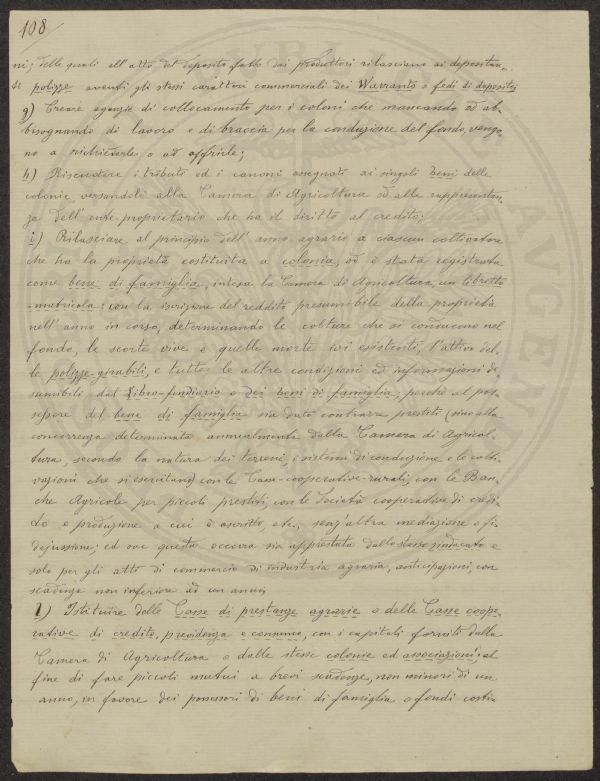 108
ni; delle quali all'atto del deposito fatto dai produttori rilasciano ai depositan-
ti polizze aventi gli stessi caratteri commerciali dei Warrants o fedi di deposito;
g) Creare agenzie di collocamento per i coloni che mancando od ab-
bisognando di lavoro e di braccia per la conduzione del fondo, vengo-
no a richiederle o ad offrirle;
h) Riscuotere i tributi ed i canoni assegnati ai singoli beni delle
colonie versandoli alla Camera di Agricoltura od alle rappresentan-
ze dell'ente proprietario che ha il diritto al credito;
i) Rilasciare al principio dell'anno agrario a ciascun coltivatore
che ha la proprietà costituita a colonia, od è stata registrata
come bene di famiglia, intesa la Camera di Agricoltura, un libretto
-matricola: con la iscrizione del reddito presumibile della proprietà
nell'anno in corso, determinando le colture che si conducono nel
fondo, le scorte vive e quelle morte ivi esistenti, l'attivo del-
le polizze-girabili, e tutte le altre condizioni ed informazioni de-
sumibili dal Libro-fondiario e dei beni di famiglia; perchè al pos-
sessore del bene di famiglia sia dato contrarre prestiti (sino alla
concorrenza determinata annualmente dalla Camera di Agricol-
tura, secondo la natura dei terreni, i sistemi di conduzione e le colti-
vazioni che si esercitano) con le Casse-cooperative-rurali, con le Ban-
che Agricole per piccoli prestiti, con le Società cooperative di credi-
to e produzione a cui è ascritto, etc., senz'altra mediazione o fi-
dejussione; ed ove questa occorra sia apprestata dallo stesso sindacato e
solo per gli atti di commercio di industria agraria, anticipazioni, con
scadenze non inferiore ad un anno;
l) Istituire delle Casse di prestanze agrarie o delle Casse coope-
rative di credito, previdenza e consumo, con i capitali forniti dalla
Camera di Agricoltura o dalle stesse colonie ed associazioni; al
fine di fare piccoli mutui a brevi scadenze, non minori di un
anno, in favore dei possessori di beni di famiglia o fondi costi-